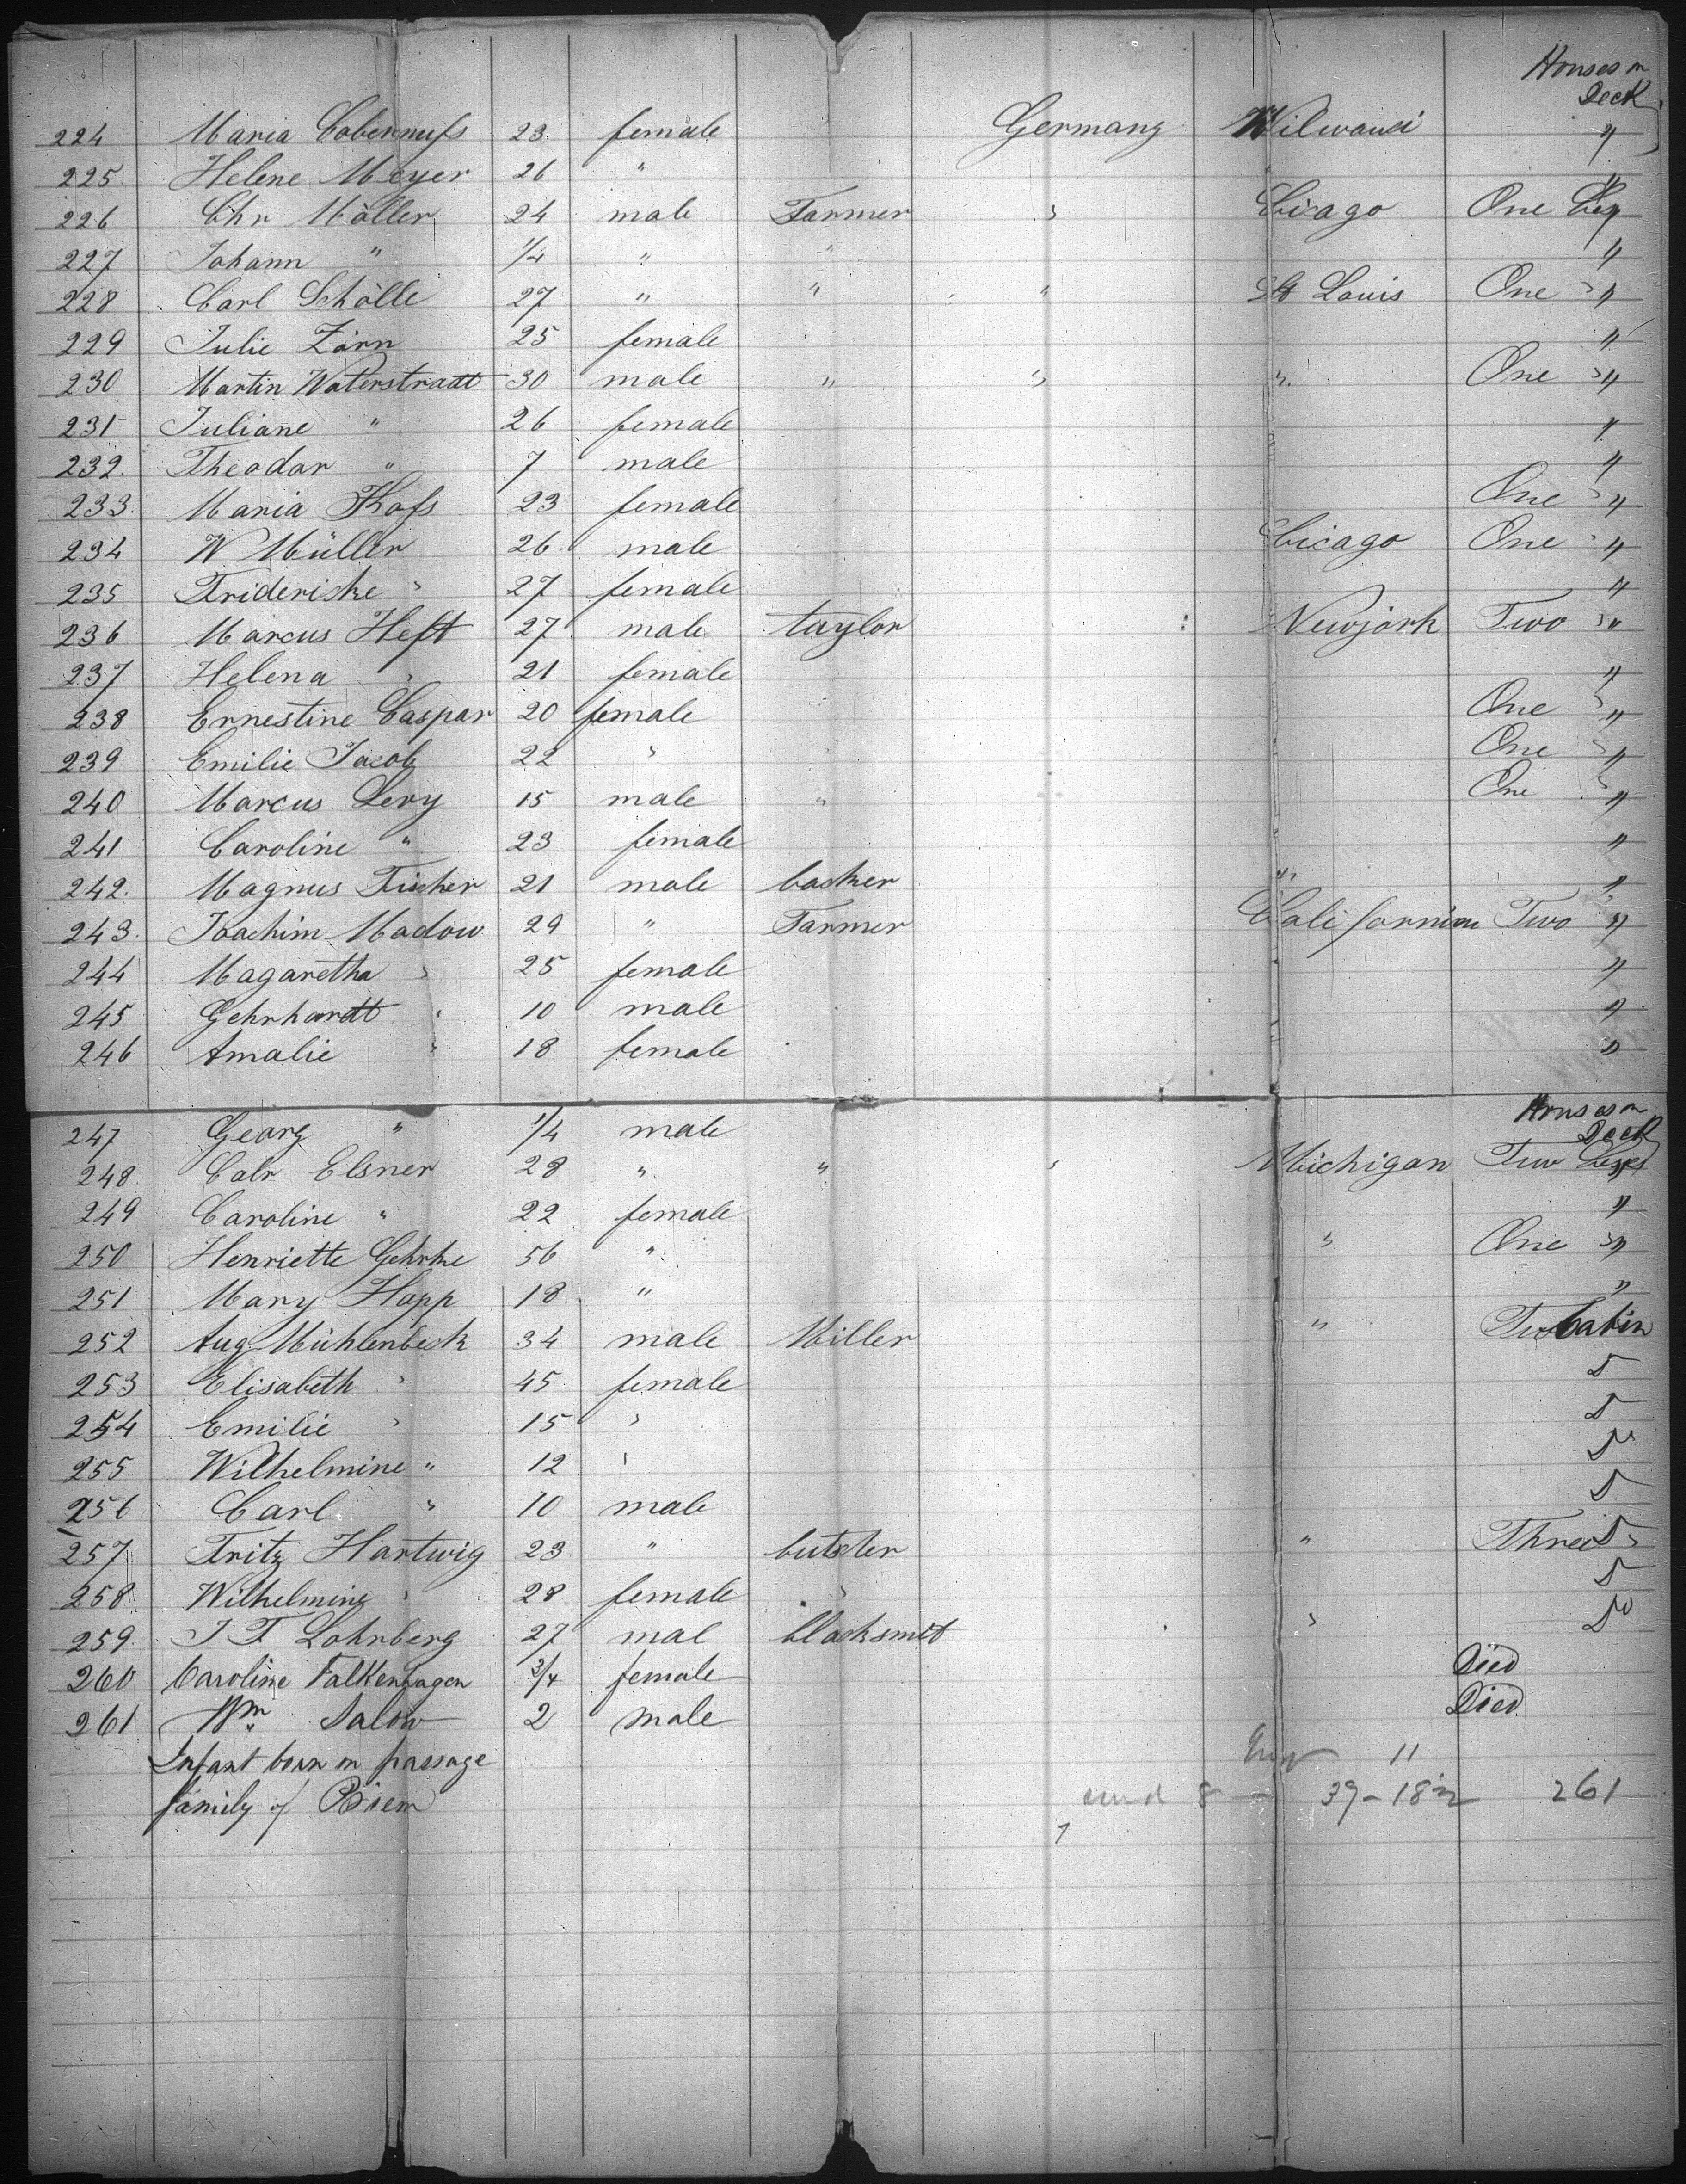 Houses on
Deck
224 Maria Cobernuss 23. female Germany Milwauci "
225 Helene Meyer 26 " "
226 Chr Möller 24 male Farmer " Cicago One "
227 Johann " 1/4 " " "
228 Carl Schölle 27 " " " St Louis One " "
229 Julie Zörn 25 female "
230 Martin Waterstradt 30 male " " " One " "
231 Juliane " 26 female "
232. Theodor " 7 male "
233. Maria Kofs 23 female One " "
234 W Müller 26 male Cicago One " "
235 Frideriske " 27 female "
236 Marcus Heft 27 male taylor Newjork Two " "
237 Helena " 21 female "
238 Ernestine Caspar 20 female One " "
239 Emilie Jacob 22 " One " "
240 Marcus Levy 15 male " One " "
241 Caroline " 23 female "
242. Magnus Fischer 21 male backer " "
243. Joachim Madow 29 " Farmer Californien Two " "
244 Magaretha " 25 female "
245 Gehrhardt " 10 male "
246 Amalie " 18 female "
Houses on
Deck
247 Georg " 1/4 male
248. Calr Elsner 28 " " " Michigan Two "
249 Caroline " 22 female "
250 Henriette Gehrke 56 " " One " "
251 Mary Hopp 18 " "
252 Aug Mühlenbeck 34 male Miller " Two Cabin
253 Elisabeth " 45 female D
254 Emilie " 15 " D
255 Wilhelmine " 12 " Do
256 Carl " 10 male D
257 Fritz Hartwig 23 " butcher " Three D "
258 Wilhelmine " 28 female " D
259. J F Lohrberg 27 mal blacksmit " Do
260 Caroline Falkenhagen 3/4 female Died
261 Wm Salow 2 male Died
Infant born on passage 11
family of Riem 8 39-18 261